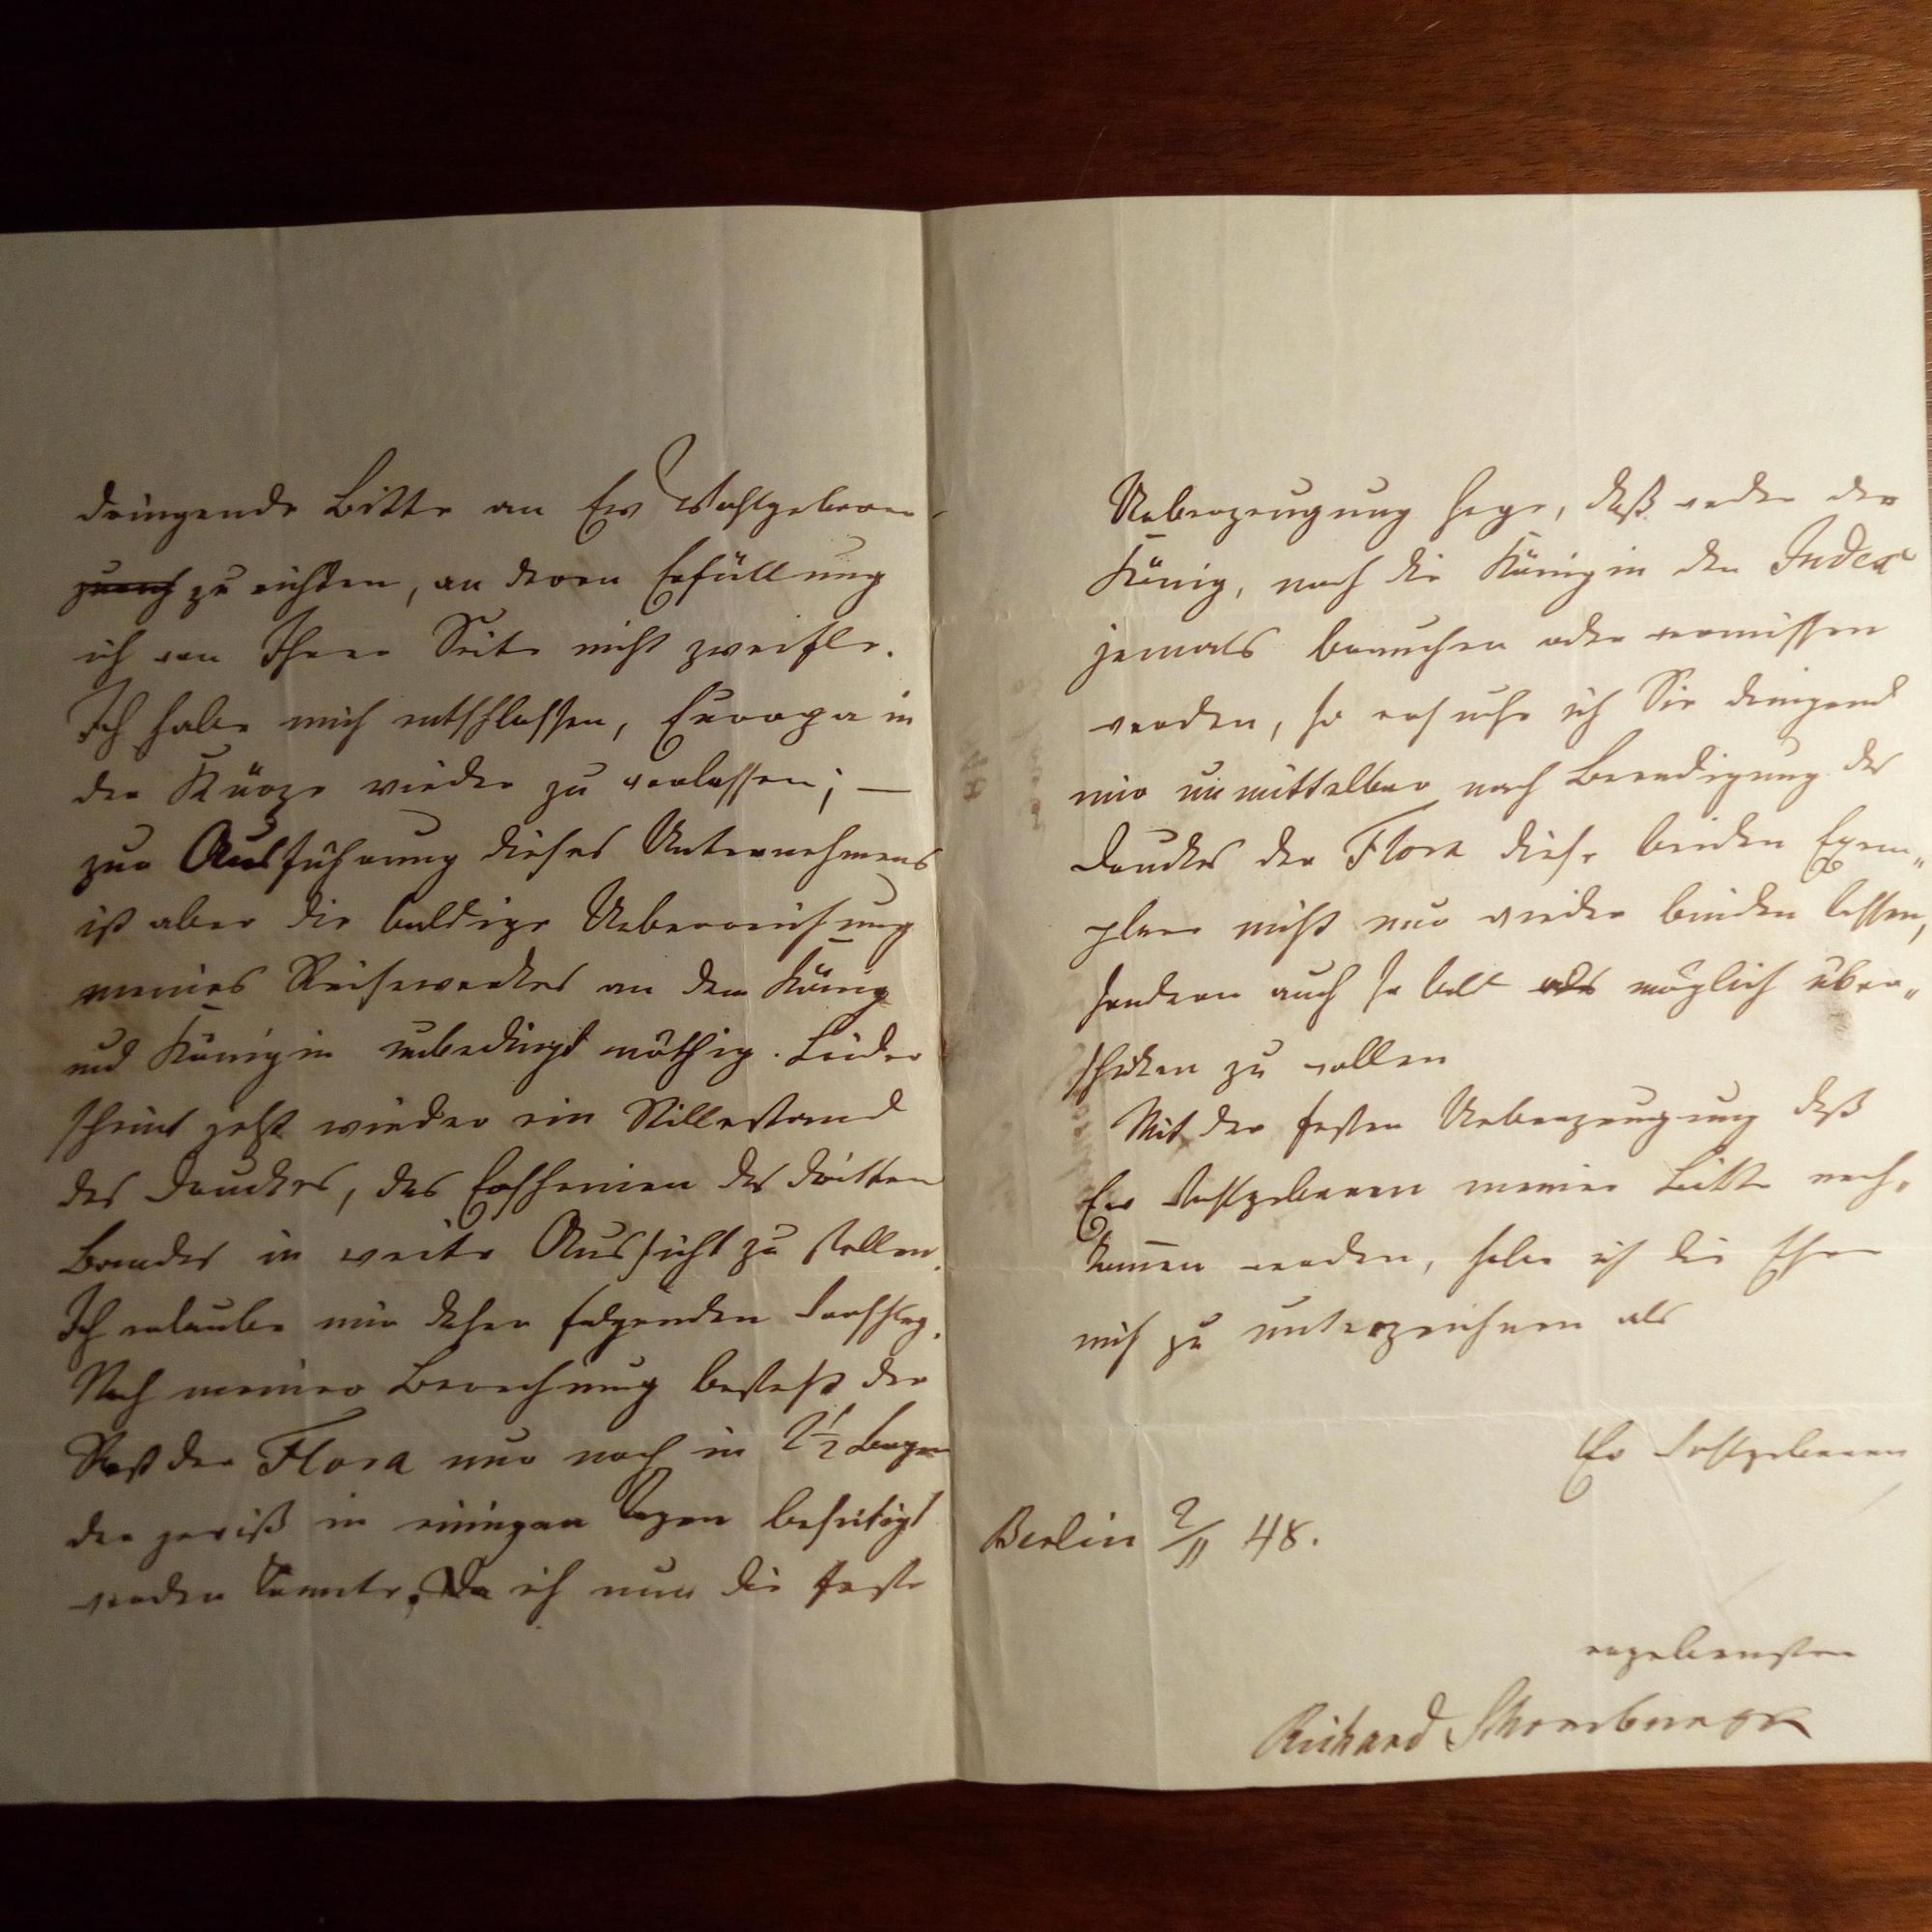 dringende Bitte an Ew Wohlgeboren
zu richten, an deren Erfüllung
ich von Ihrer Seite nicht zweifle.
Ich habe mich entschlossen, Europa in
der Kürze wieder zu verlassen; —
zur Ausführung dieses Unternehmens
ist aber die baldige Ueberreichung
meines Reisewerkes an den König
und Königin unbedingt nöthig. Leider
scheint jetzt wieder ein Stillestand
des Druckes, das Erscheinen des dritten
Bandes in weite Aussicht zu stellen.
Ich erlaube mir daher folgenden Vorschlag.
Nach meiner Berechnung besteht der
Rest der Flora nur noch in 2½ Bogen
der gewiß in einigen Tagen beseitigt
werden könnte. Da ich nun die feste
Ueberzeugung hege, daß weder der
König, noch die Königin den Index
jemals brauchen oder vermissen
werden, so ersuche ich Sie dringend
mir unmittelbar nach Beendigung des
Druckes der Flora diese beiden Exem„
plare nicht nur wieder binden lassen,
sondern auch so bald als möglich über„
schicken zu wollen
Mit der festen Ueberzeugung daß
Ew Wohlgeboren meiner Bitte nach„
kom̄en werden, habe ich die Ehre
mich zu unterzeichnen als
Ew Wohlgeboren
Berlin 2/11 48.
ergebenster
Richard Schomburgk